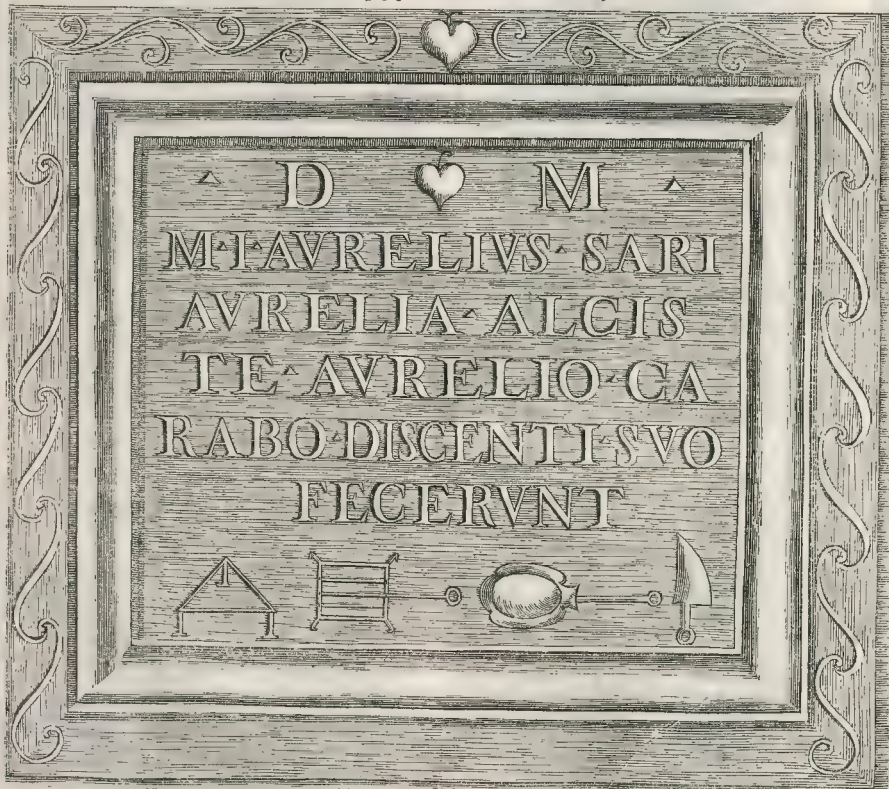 D M
M·I·AVRELIVS· SARI
AVRELIA· ALCIS
TE· AVRELIO·CA
RABO·DISCENTI·SVO
FECERVNT